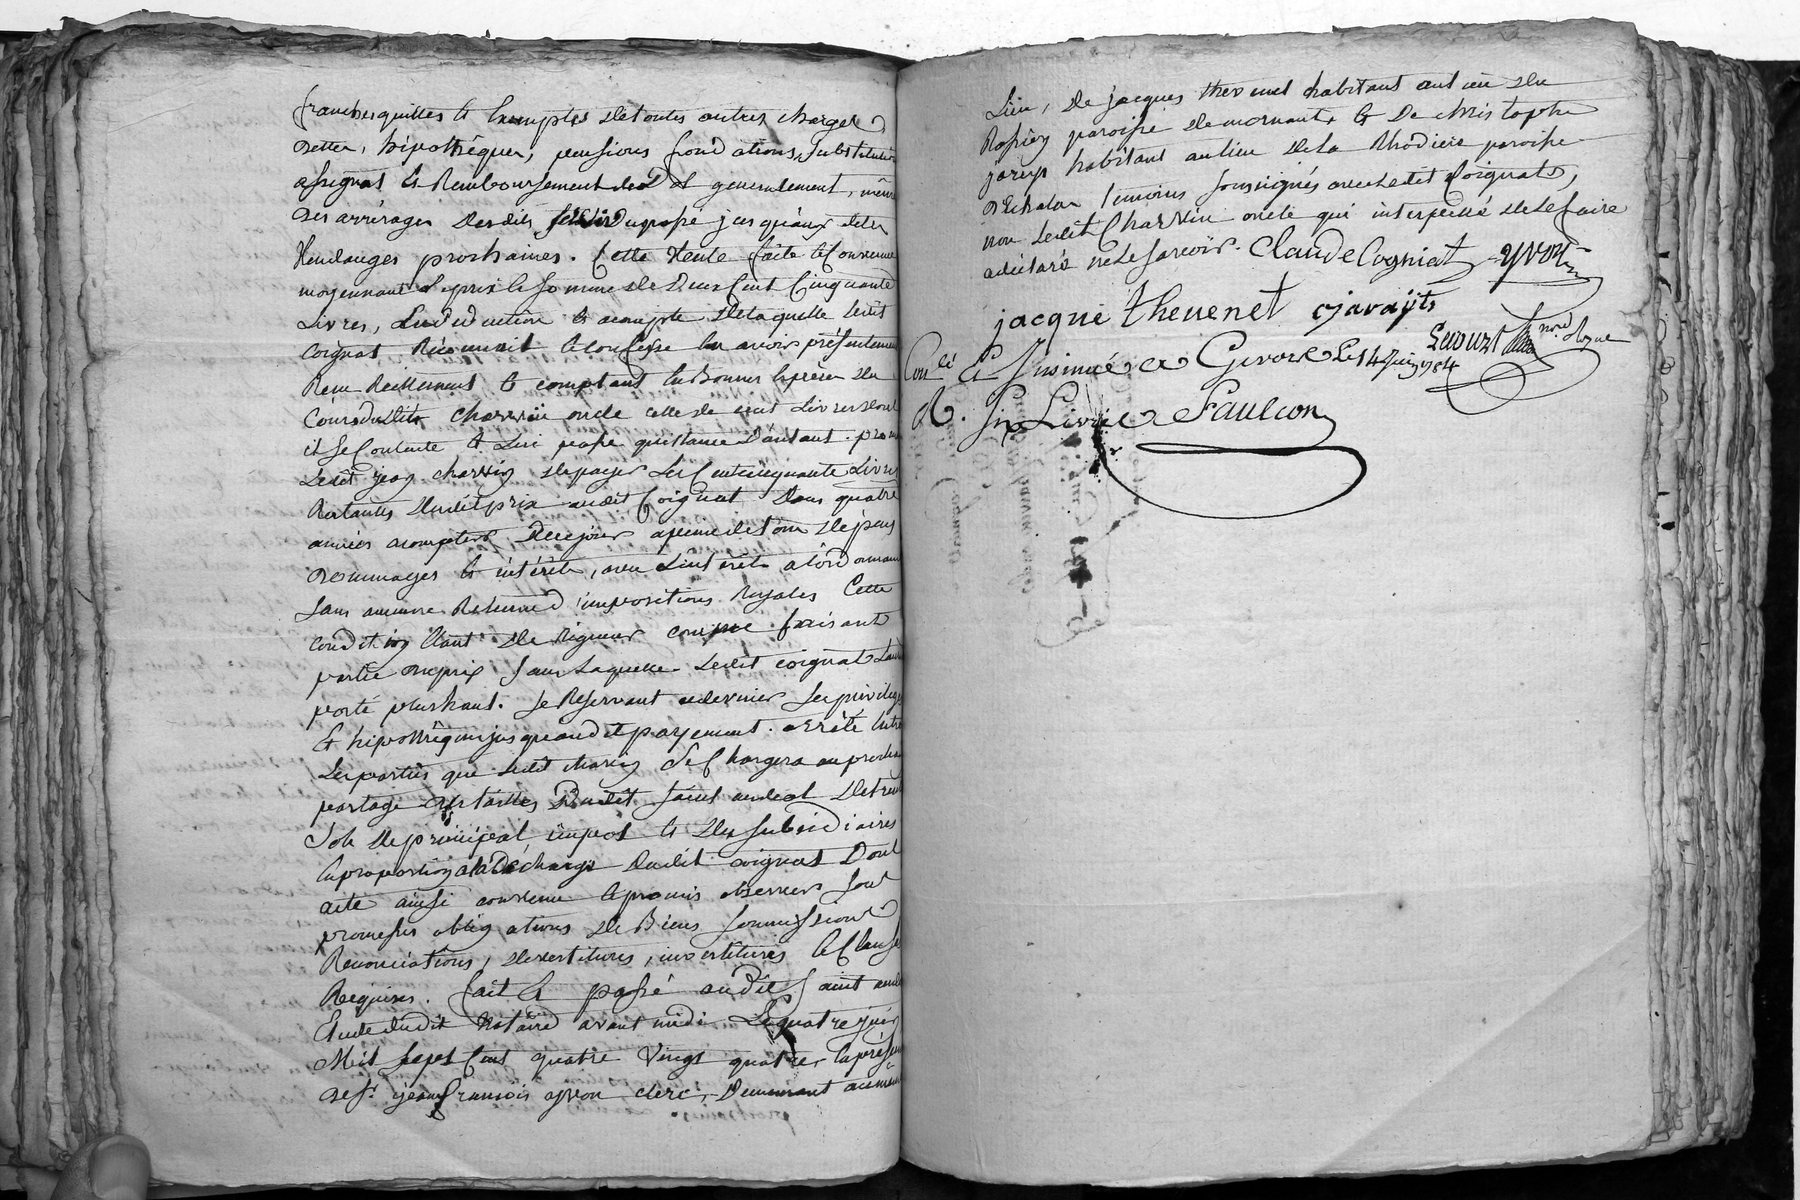 franches quittes et Exemptes de toutes autres charges
dettes, hipothêques, pensions fondations, substitution
assignat et Remboursement de D generalement, même
des arrérages desdits jusquiaux dites
Vendanges prochaines. Cette Vente faite et Convenue
moyennant Le prix et somme de Deux Cent Cinquante
Livres, En deduction et acompte de laquelle ledit
Coignat Reconnait et Confesse En avoir présentement
Reçu Réellement et comptant En bonnes Espèces du
Cours dudit Charvin oncle celle de cent Livres dont
il se Contente et L'en passe quittance d'autant. promet
Ledit jean charvin de payer Les Cent cinquante Livres
Restantes dudit prix audit Coignat Dans quatre
années acompter de ce jour apeine de tous dépens
dommages et intérêts, avec L'intérêt a l'ordonnance
sans aucune Retenue d'impositions Royales Cette
condition Etant de Rigueur comme faisant
partie du prix sans Laquelle Ledit coignat L'auroit
porté plus haut. se Réservant ce dernier Ses privileges
Et hipothêque jusquaudit payement. arrêté Entre
Les parties que Ledit charvin se Chargera au prochain
partage des tailles Dudit saint andeol de trente
sols de principal impot et des subsidiaires
En proportion a la Décharge dudit coignat Dont
acte ainsi convenu et promis observer sous
promesses obligations de Biens soumissions
Renonciations, devestitures, investitures et Clauses
Requises. fait et passé audit saint andeol
Etude dudit Notaire avant midi Le quatre juin
Mil sept Cent quatre Vingt quatre En présence
de sr. jean françois yvon clerc, Demeurant au même
Lieu, de jacques thevenet habitant au Lieu du
Rosséon paroisse de mornant, et De christophe
javays habitant au lieu de la Rhodiere paroisse
d'Echalas temoins soussignés avec Ledit Coignat,
non Ledit Charvin oncle qui interpellé de le faire
a déclaré ne Le savoir. Claude Cogniat yvon
jacque thevenet cjavayts
nore. Royal
Conlé Et Insinué a Givors Le 14 juin 1784
R. six Livres Faulcon